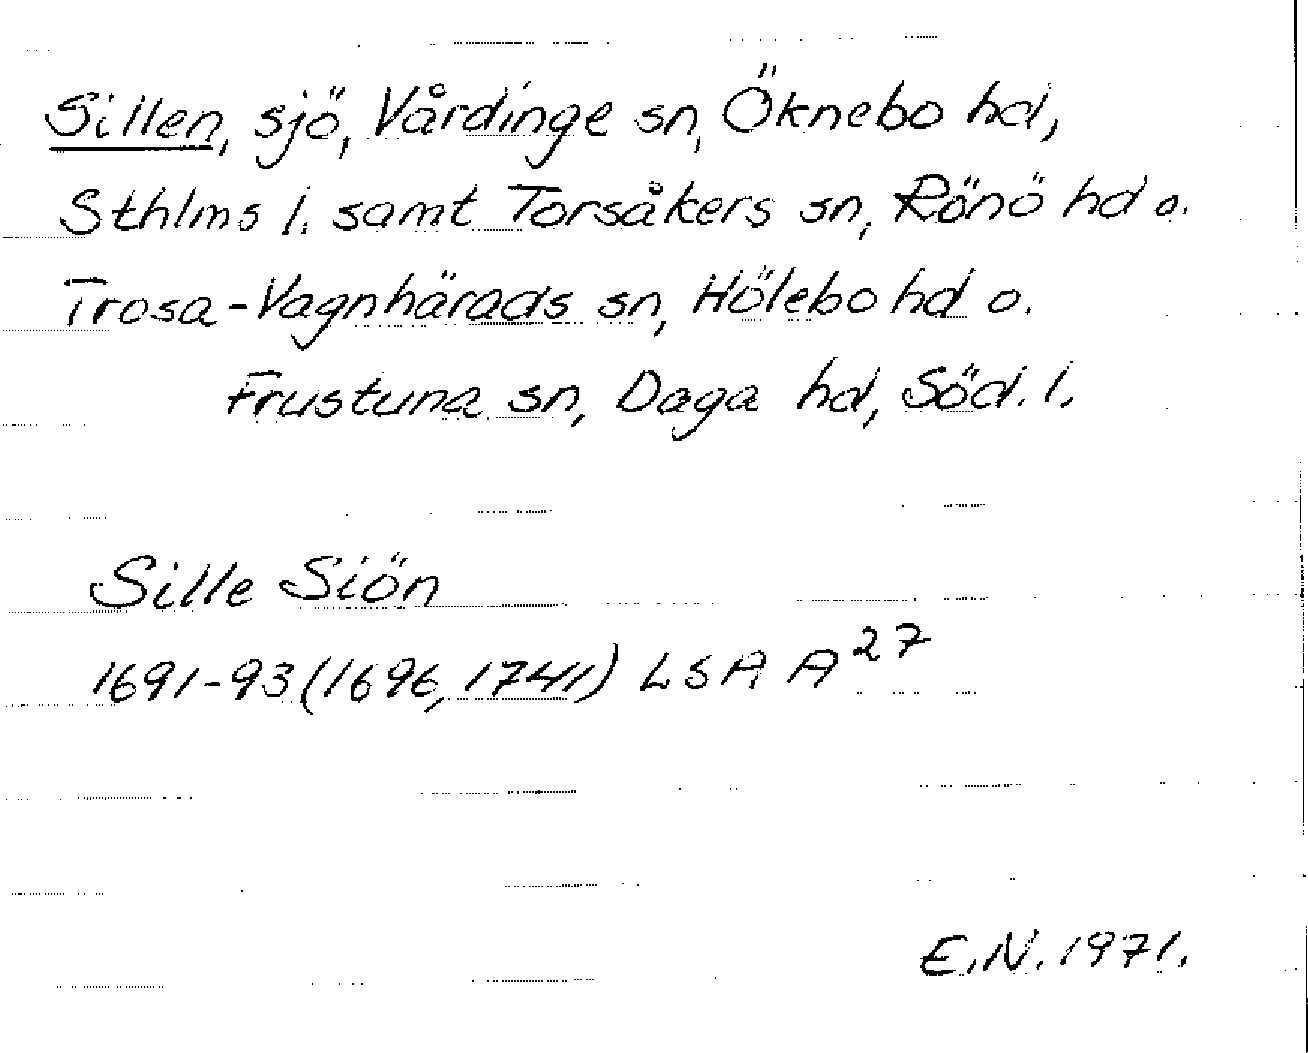 Sillen, sjö, Vårdinge sn, Öknebo hd,
Sthlms l. samt Torsåkers sn, Rönö hd o.
Trosa-Vagnhärads sn, Hölebo hd o.
Frustuna sn, Daga hd, Söd. l.
Sille Siön
1691-93 (1696, 1741) LSA A27
E.N. 1971.